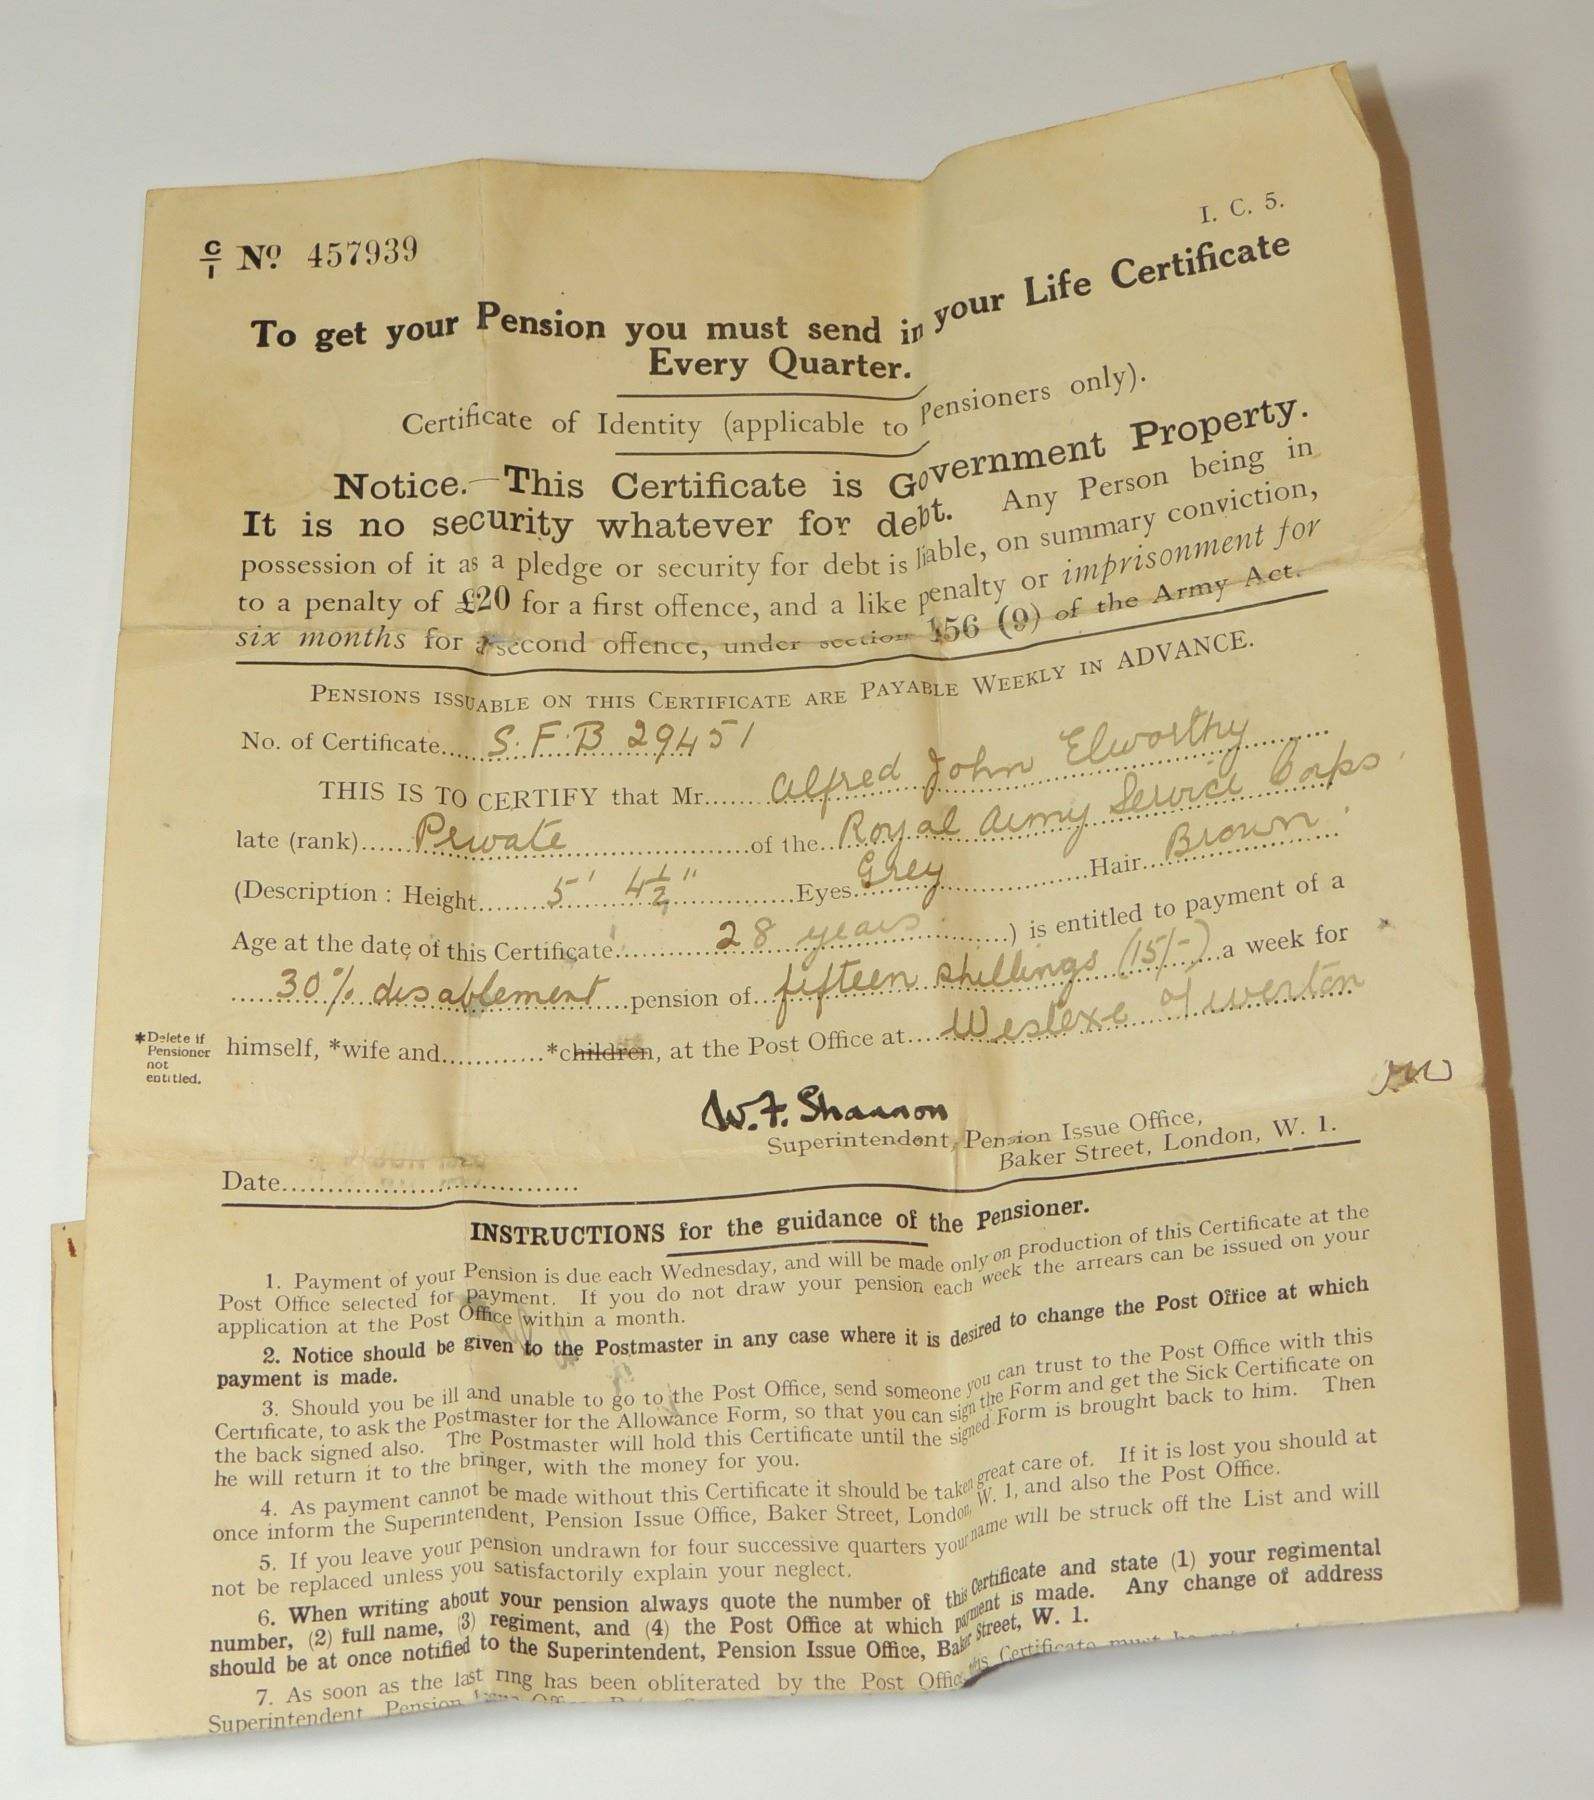 I. C. 5.
C/I No. 457939
To get your Pension you must send in your Life Certificate
Every Quarter.
Certificate of Identity (applicable to Pensioners only).
Notice.—This Certificate is Government Property.
It is no security whatever for debt. Any Person being in
possession of it as a pledge or security for debt is liable, on summary conviction,
to a penalty of £20 for a first offence, and a like penalty or imprisonment for
six months for a second offence, under section 156 (9) of the Army Act.
PENSIONS ISSUABLE ON THIS CERTIFICATE ARE PAYABLE WEEKLY IN ADVANCE.
No. of Certificate..... S.F.B 29451
THIS IS TO CERTIFY that Mr...... Alfred John Elworthy
late (rank)..... Private .....of the.. Royal Army Service Corps
(Description : Height..... 5' 4½" .....Eyes. Grey .....Hair.. Brown
Age at the date of this Certificate..... 28 years .....) is entitled to payment of a
..... 30% disablement ...pension of.. fifteen shillings (15/-) ..a week for
*Delete if
Pensioner
not
entitled.
himself, *wife and............*children, at the Post Office at....
W. F. Shannon
Superintendent, Pension Issue Office,
Baker Street, London, W. 1.
Date..............................
INSTRUCTIONS for the guidance of the Pensioner.
1. Payment of your Pension is due each Wednesday, and will be made only on production of this Certificate at the
Post Office selected for payment. If you do not draw your pension each week the arrears can be issued on your
application at the Post Office within a month.
2. Notice should be given to the Postmaster in any case where it is desired to change the Post Office at which
payment is made.
3. Should you be ill and unable to go to the Post Office, send someone you can trust to the Post Office with this
Certificate, to ask the Postmaster for the Allowance Form, so that you can sign the Form and get the Sick Certificate on
the back signed also. The Postmaster will hold this Certificate until the signed Form is brought back to him. Then
he will return it to the bringer, with the money for you.
4. As payment cannot be made without this Certificate it should be taken great care of. If it is lost you should at
once inform the Superintendent, Pension Issue Office, Baker Street, London, W. 1, and also the Post Office.
5. If you leave your pension undrawn for four successive quarters your name will be struck off the List and will
not be replaced unless you satisfactorily explain your neglect.
6. When writing about your pension always quote the number of this Certificate and state (1) your regimental
number, (2) full name, (3) regiment, and (4) the Post Office at which payment is made. Any change of address
should be at once notified to the Superintendent, Pension Issue Office, Baker Street, W. 1.
7. As soon as the last ring has been obliterated by the Post Office this Certificate must be
Superintendent, Pension Issue Office,